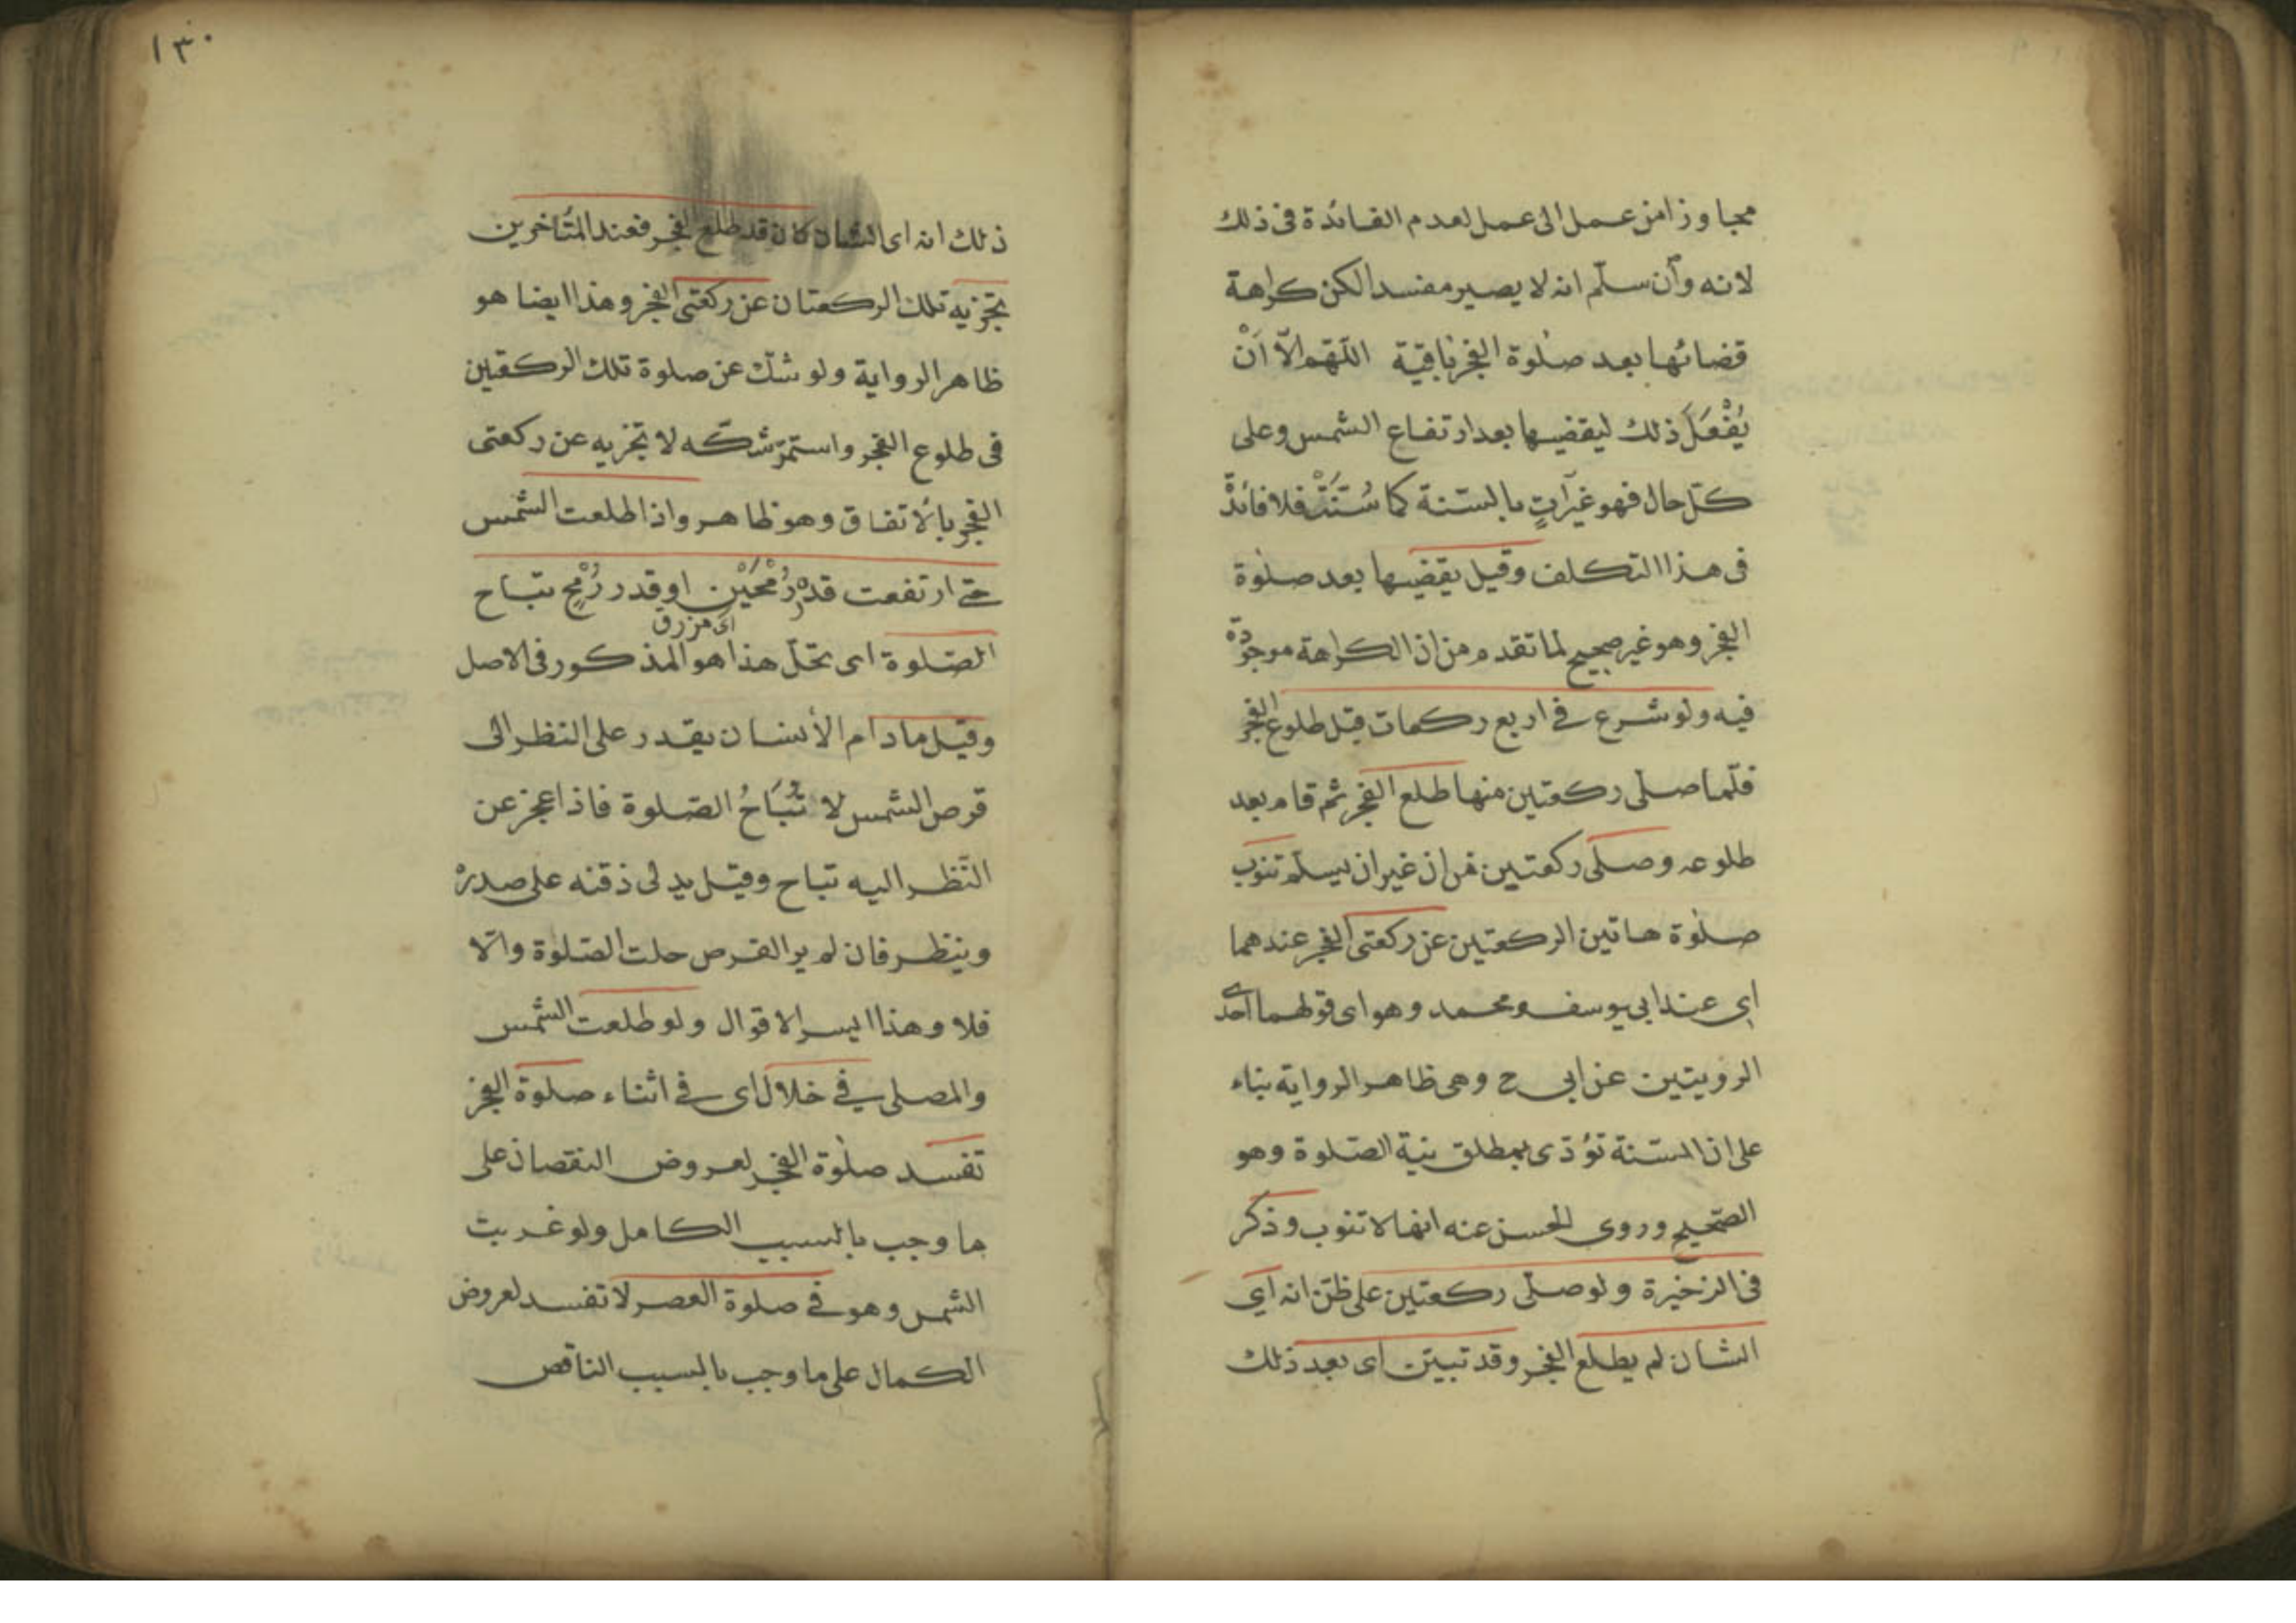 مجاوزا من عمل الى عمل لعدم الفائدة فى ذلك
لانه وان سلّم انه لا يصير مفسدا لكن كراهة
قضائها بعد صلوة الفجر باقية اللّهم الّا اَنْ
يُفْعَلَ ذلك ليقضيها بعد ارتفاع الشمس وعلى
كلّ حال فهو غير آتٍ بالسّنة كما سُنَّتْ فلا فائدة
فى هذا التكلف وقيل يقضيها بعد صلوة
الفجر وهو غير صحيح لما تقدم من ان الكراهة موجودة
فيه ولو شرع فے اربع ركعات قبل طلوع الفجر
فلمّا صلّى ركعتين منها طلع الفجر ثم قام بعد
طلوعه وصلى ركعتين من ان غير ان يسلّم تنوب
صلوة هاتين الركعتين عن ركعتى الفجر عندهما
اى عند ابى يوسف ومحمد وهو اى قولهما احدى
الرويتين عن ابى ح وهى ظاهر الرواية بناء
على ان السّنة تؤدّى بمطلق نية الصّلوة وهو
الصّحيح وروى الحسن عنه انها لا تنوب وذكر
فى الذخيرة ولو صلّى ركعتين على ظنّ انه اى
الشان لم يطلع الفجر وقد تبيّن اى بعد ذلك
١٣٠
ذلك انه اى الشان كان قد طلع الفجر فعند المتأخرين
تجزيه تلك الركعتان عن ركعتى الفجر وهذا ايضا هو
ظاهر الرواية ولو شكّ عن صلوة تلك الركعتين
فى طلوع الفجر واستمرّ شكّه لا تجزيه عن ركعتى
الفجر بالاتفاق وهو ظاهر واذا طلعت الشّمس
حتے ارتفعت قدر رُمْحَيْنِ او قدر رُمْحٍ تباح
اى مزرق
الصّلوة اى تحلّ هذا هو المذكور فى الاصل
وقيل ما دام الأنسان يقدر على النظر الى
قرص الشمس لا تُبَاحُ الصّلوة فاذا عجز عن
النّظر اليه تباح وقيل يدلى ذقنه على صدره
وينظر فان لم ير القرص حلت الصّلوة والّا
فلا وهذا ايسر الاقوال ولو طلعت الشّمس
والمصلى فے خلال اى فے اثناء صلوة الفجر
تفسد صلوة الفجر لعروض النقصان على
ما وجب بالسبب الكامل ولو غربت
الشمس وهو فے صلوة العصر لا تفسد لعروض
الكمال على ما وجب بالسبب الناقص